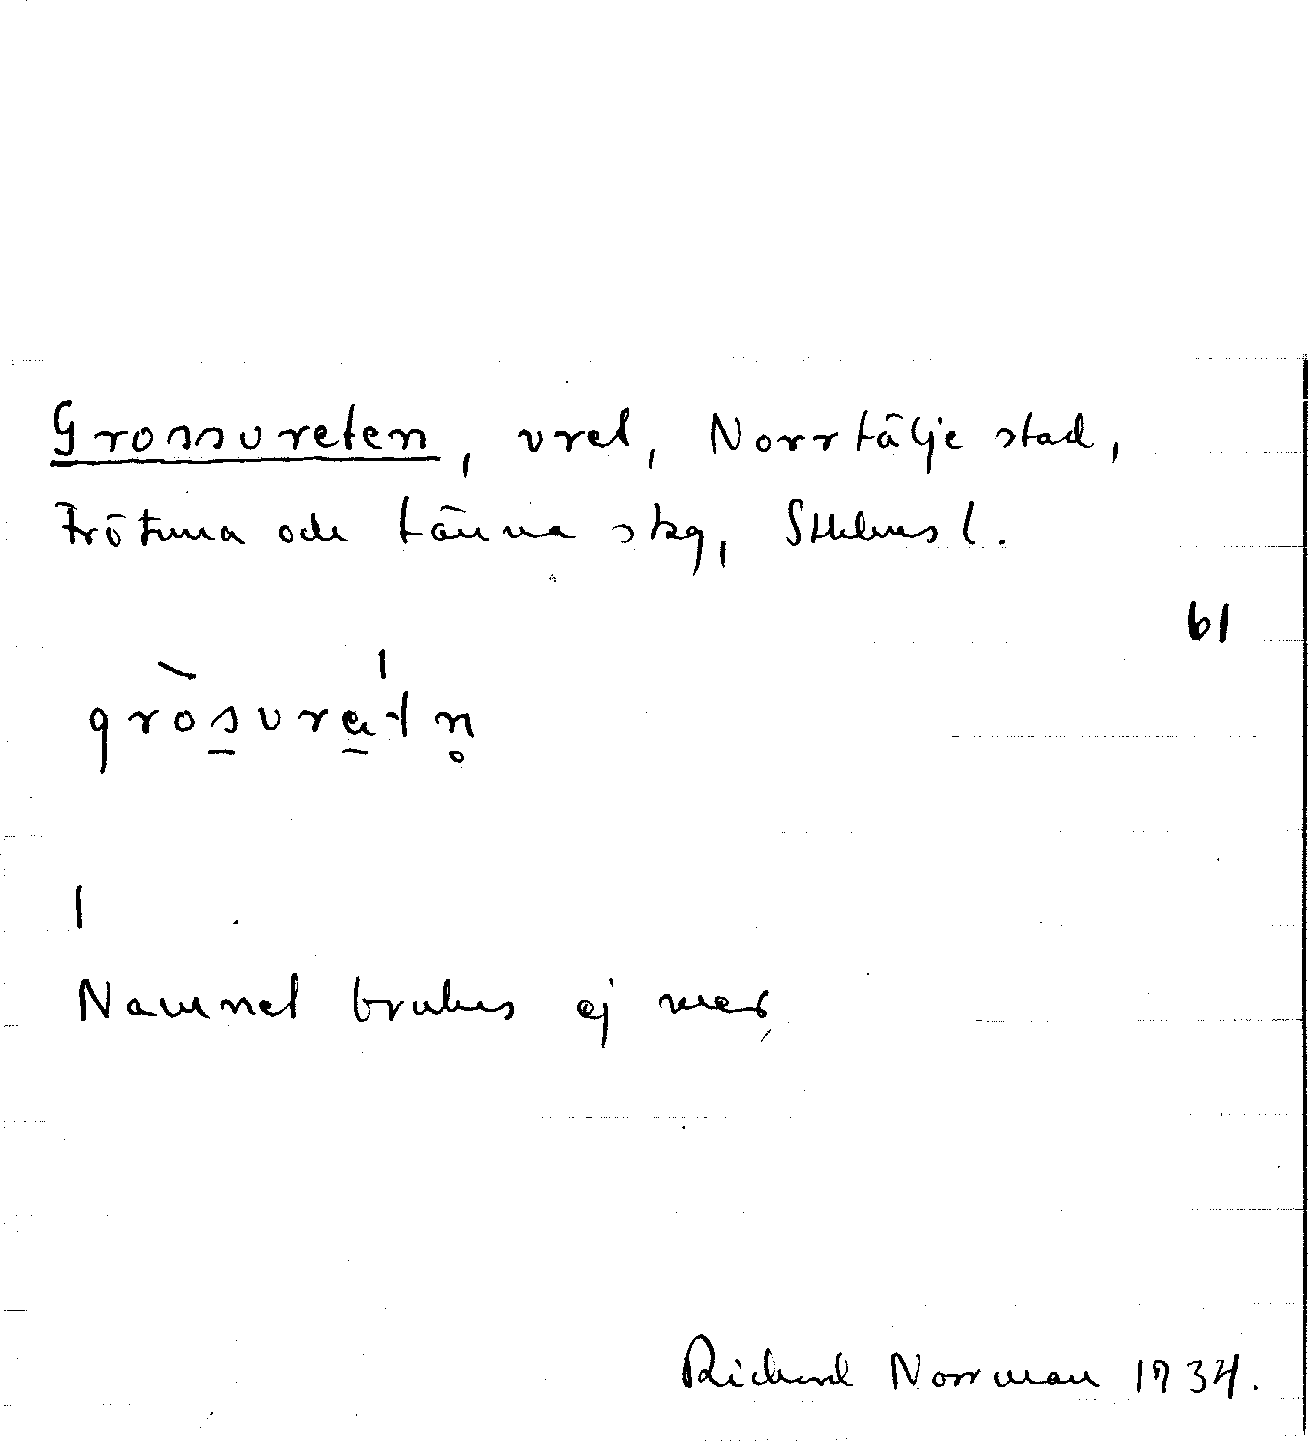 Grossvreten, vret, Norrtälje stad,
Frötuna och Länna skg, Sthlms l.
61
gròsvrátn̥
1
Namnet brukes ej mer
Richard Norrman 1934.